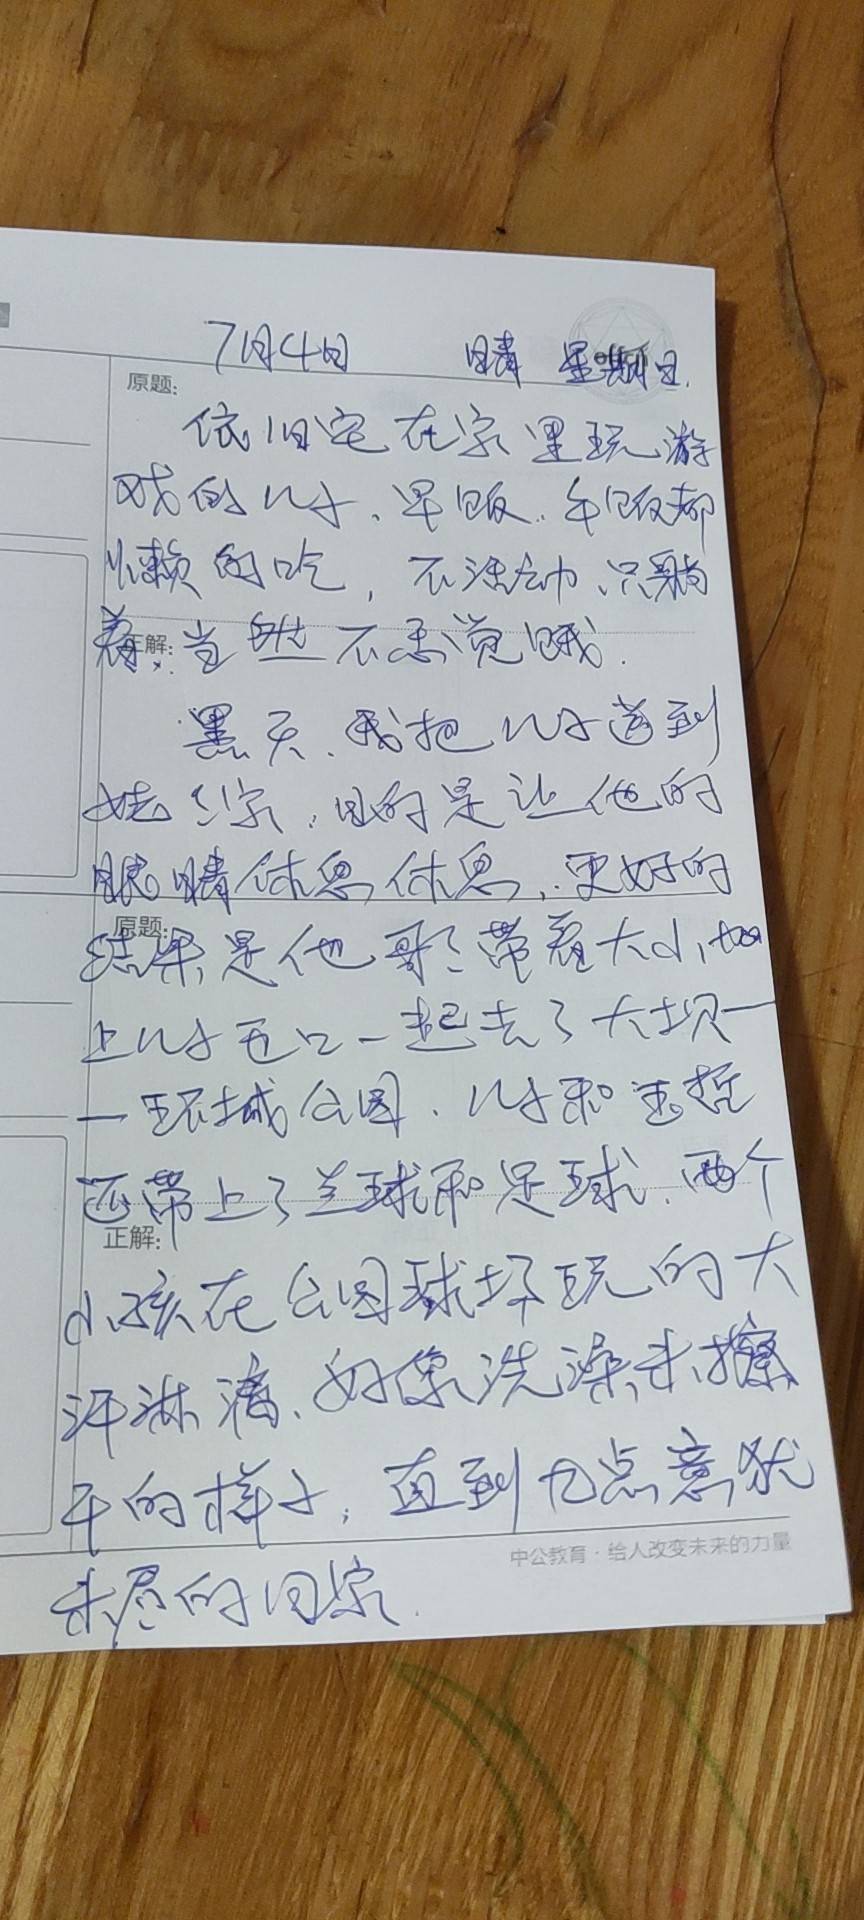 7月4日 晴 星期日.
原题:
依旧宅在家里玩游
戏的儿子、早饭、午饭都
懒的吃，不活动、只躺
着，当然不感觉饿.
正解:
黑天、我把儿子送到
姥姥家，目的是让他的
眼睛休息休息，更好的
原题:
结果是他哥哥带着大小加
上儿子五口一起去了大坝一
一环城公园、儿子和玉哲
还带上了兰球和足球、两个
正解:
小孩在公园球场玩的大
汗淋漓、好像洗澡未擦
干的样子，直到九点意犹
中公教育·给人改变未来的力量
未尽的回家.